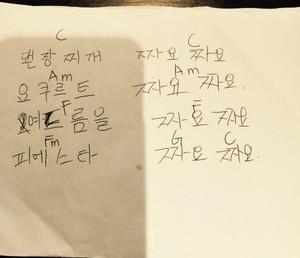 C C
된장찌개 짜요 짜요.
Am Am
요쿠르트 짜요 짜요.
F F
여드름을 짜요 짜요
Fm G C
피에스타 짜요 짜요.